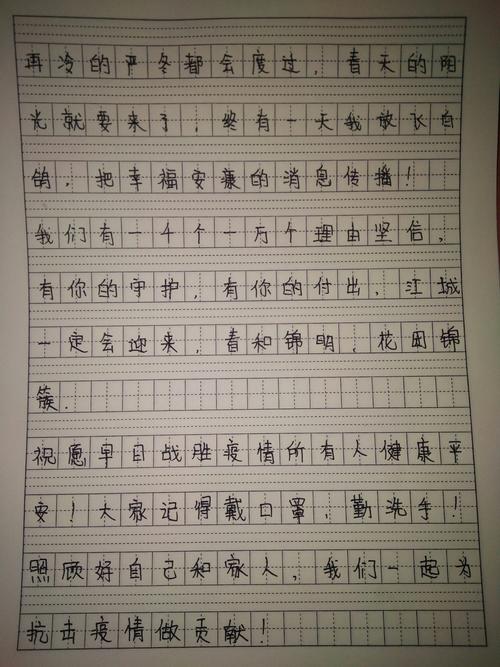 再冷的严冬都会度过，春天的阳
光就要来了，终有一天我放飞白
鸽，把幸福安康的消息传播！
我们有一千个一万个理由坚信，
有你的守护，有你的付出，江城
一定会迎来，春和锦明，花田锦
簇.
祝愿早日战胜疫情所有人健康平
安！大家记得戴口罩，勤洗手！
照顾好自己和家人，我们一起为
抗击疫情做贡献！